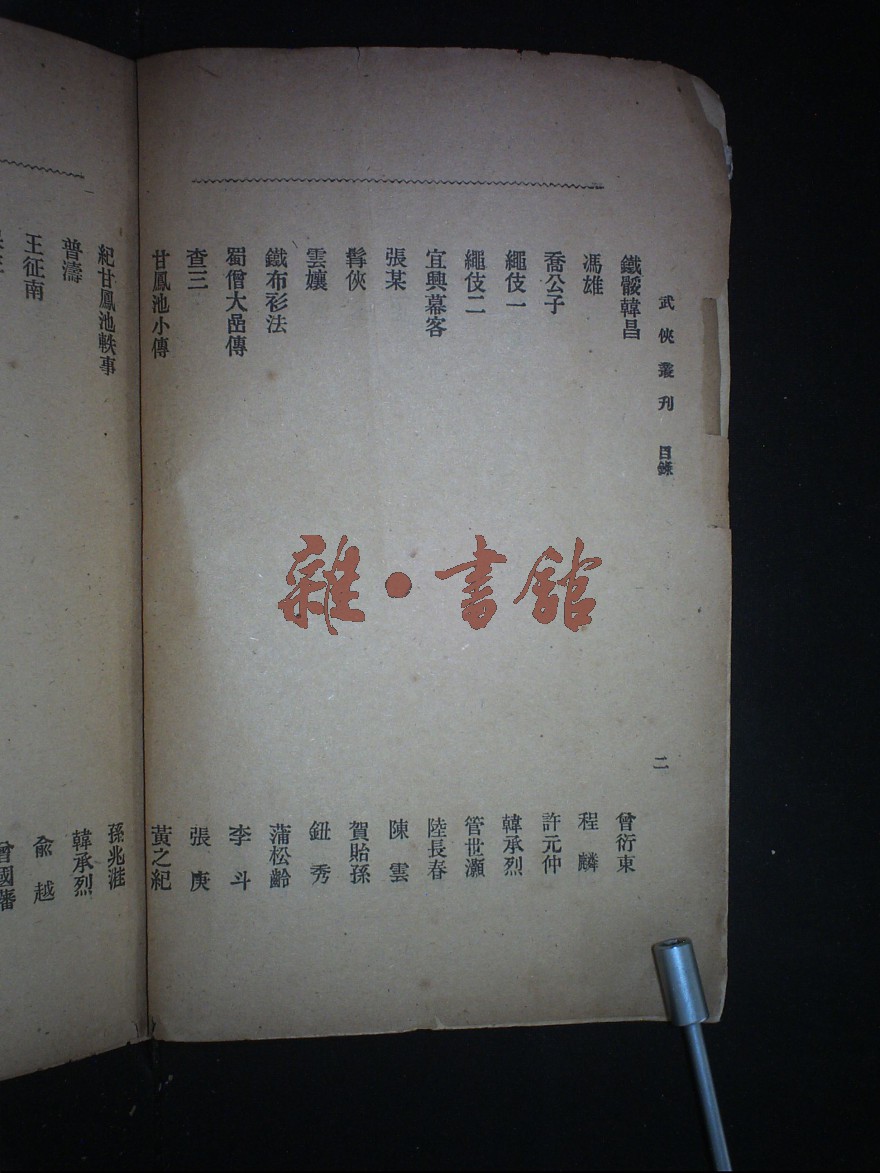 武俠叢刊 目錄 二
鐵骽韓昌 曾衍東
馮雄 程麟
喬公子 許元仲
繩伎一 韓承烈
繩伎二 管世灝
宜興幕客 陸長春
張某 陳雲
髯俠 賀貽孫
雲孃 鈕秀
鐵布衫法 蒲松齡
蜀僧大嵒傳 李斗
查三 張庚
甘鳳池小傳 黃之紀
紀甘鳳池軼事 孫兆溎
普濤 韓承烈
王征南 俞越
曾國藩
雜·書館